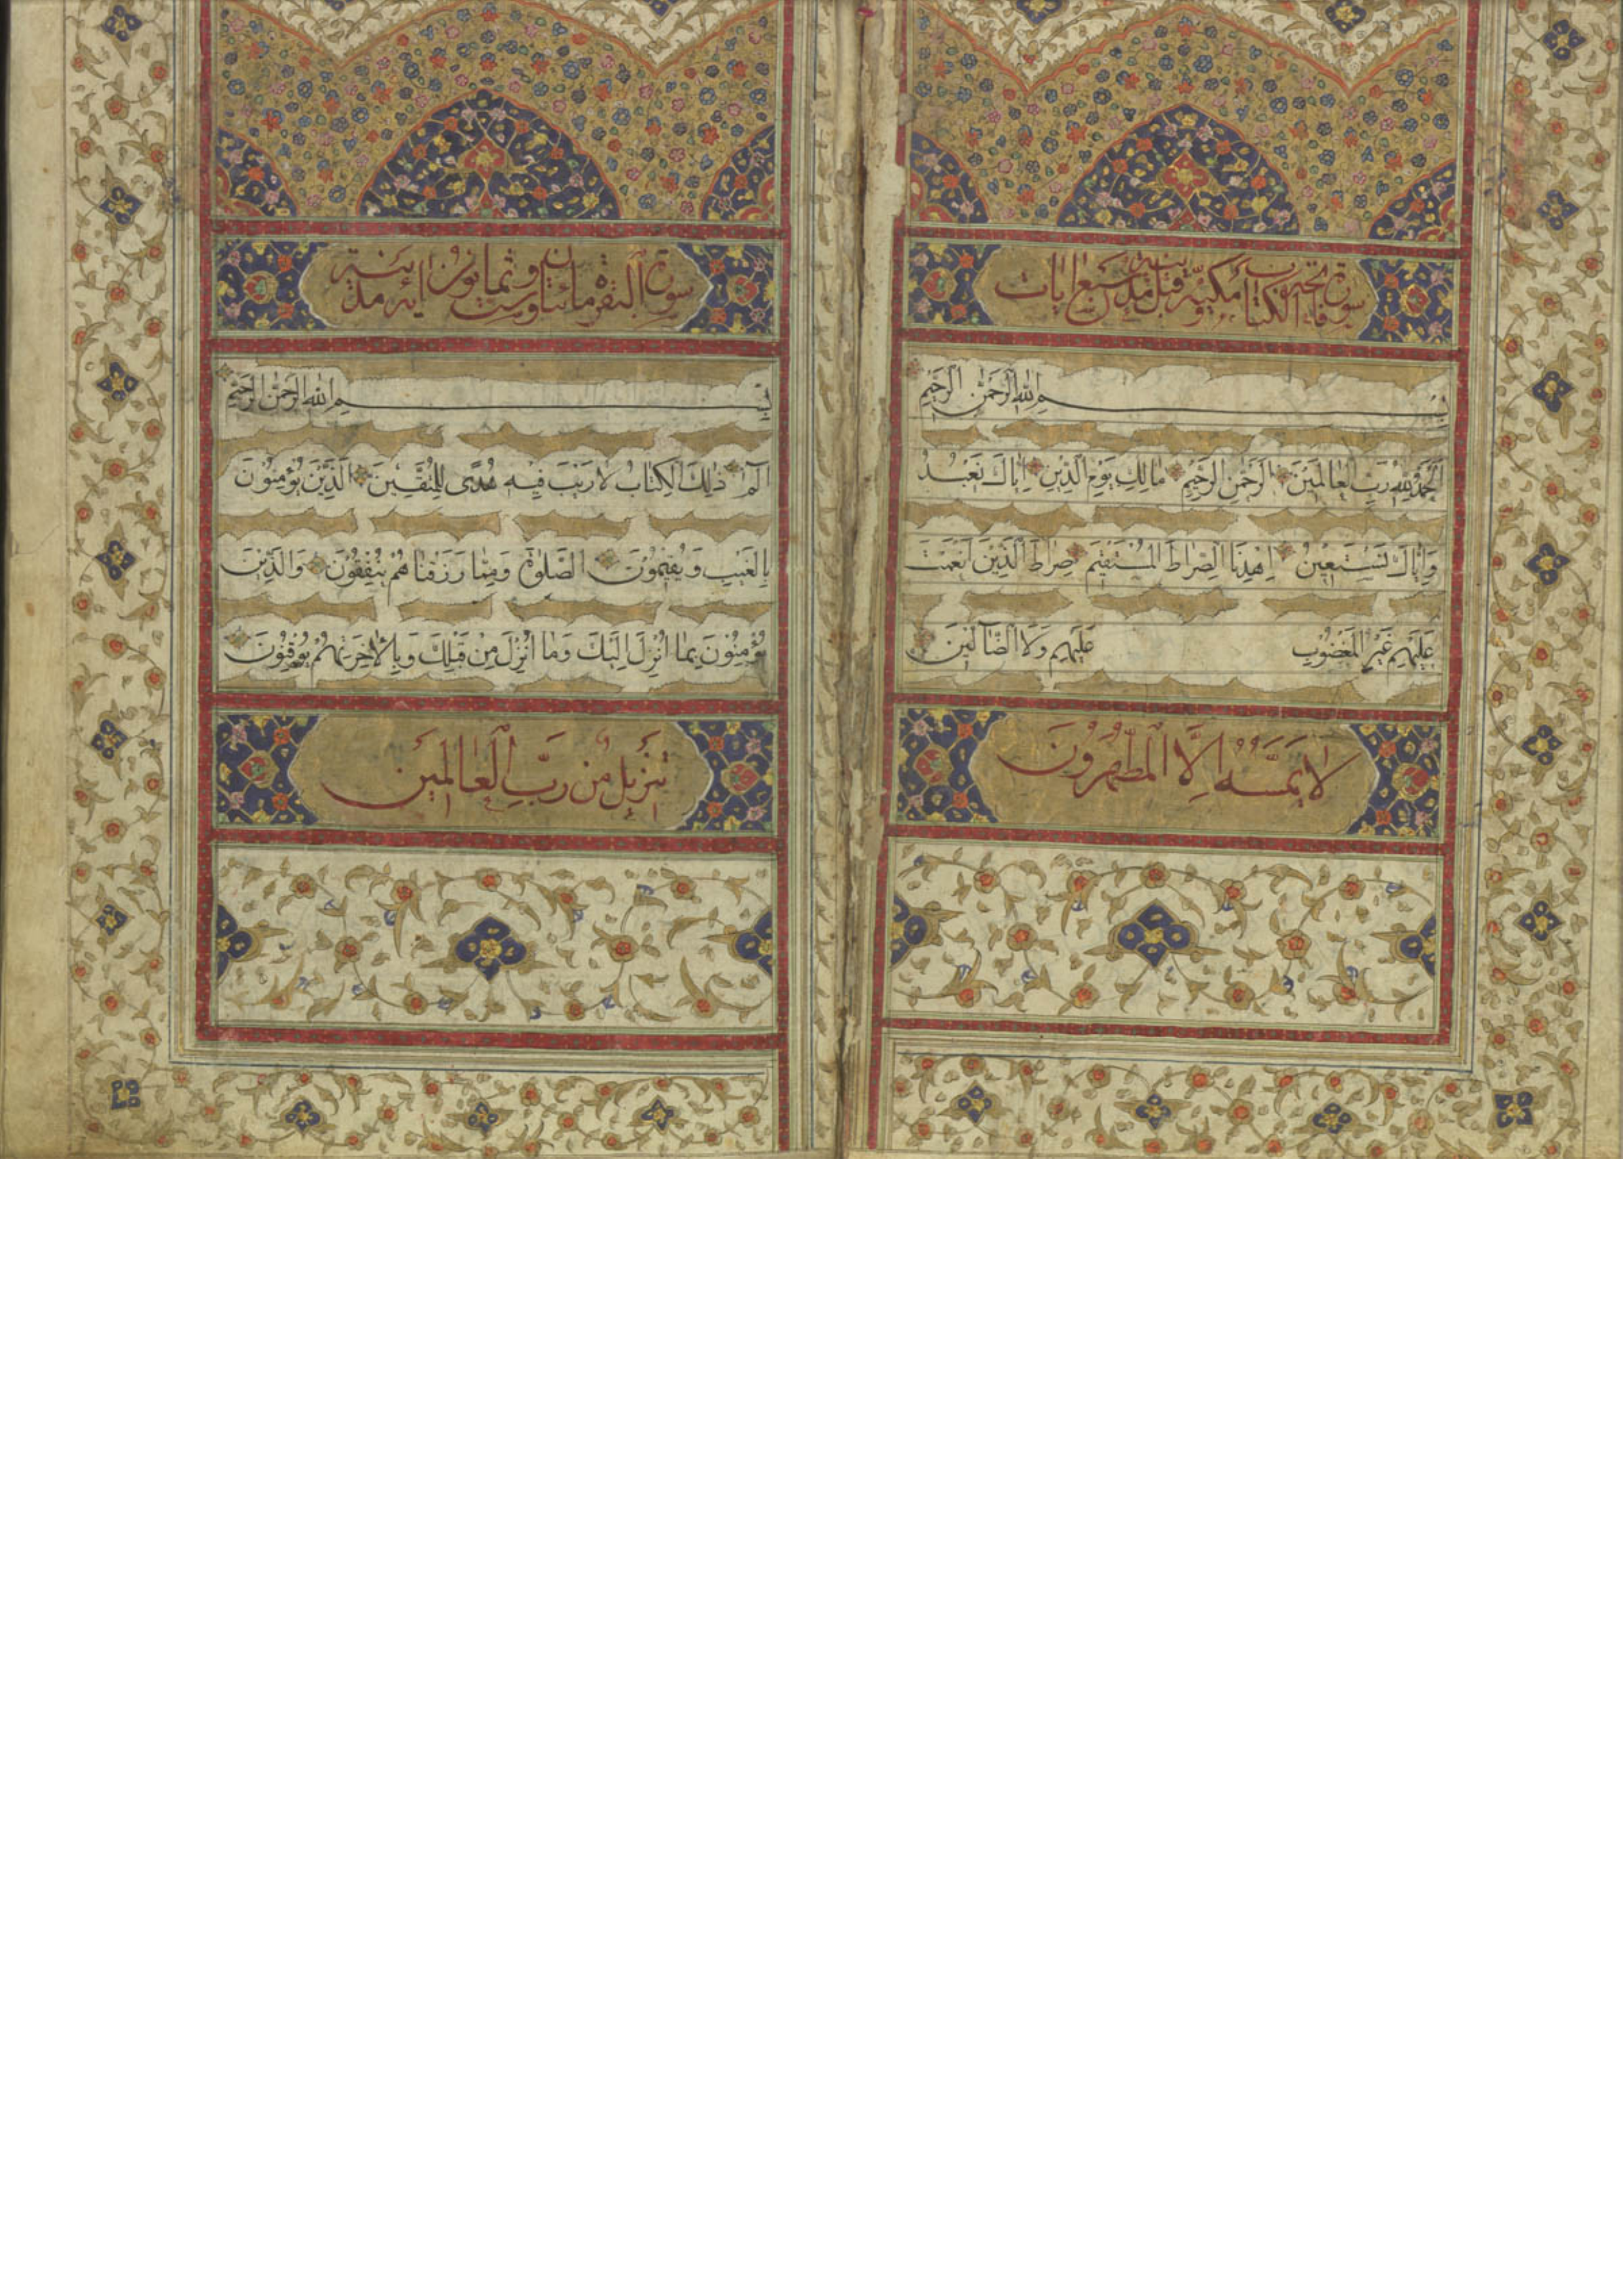 سورة فاتحة الكتاب مكية وقيل مدنية سبع ايات
بِسْمِ اللهِ الرَّحْمٰنِ الرَّحِيْمِ
اَلْحَمْدُ لِلّٰهِ رَبِّ الْعٰالَمِيْنَ الرَّحْمٰنِ الرَّحِيْمِ مٰالِكِ يَوْمِ الدِّيْنِ اِيّٰاكَ نَعْبُدُ
وَاِيّٰاكَ نَسْتَعِيْنُ اِهْدِنَا الصِّرٰاطَ الْمُسْتَقِيْمَ صِرٰاطَ الَّذِيْنَ اَنْعَمْتَ
عَلَيْهِمْ غَيْرِ الْمَغْضُوْبِ عَلَيْهِمْ وَلَا الضّٰالِّيْنَ
لَا يَمَسُّهُ اِلَّا الْمُطَهَّرُونَ
سورة البقرة مائتان وست وثمانون اية مدنية
بِسْمِ اللهِ الرَّحْمٰنِ الرَّحِيْمِ
الٓمٓ ذٰلِكَ الْكِتٰابُ لَا رَيْبَ فِيْهِ هُدًى لِلْمُتَّقِيْنَ اَلَّذِيْنَ يُؤْمِنُوْنَ
بِالْغَيْبِ وَيُقِيْمُوْنَ الصَّلٰوةَ وَمِمّٰا رَزَقْنٰاهُمْ يُنْفِقُوْنَ وَالَّذِيْنَ
يُؤْمِنُوْنَ بِمٰا اُنْزِلَ اِلَيْكَ وَمٰا اُنْزِلَ مِنْ قَبْلِكَ وَبِالْاٰخِرَةِ هُمْ يُوْقِنُوْنَ
تَنْزِيلٌ مِنْ رَبِّ الْعٰالَمِينَ